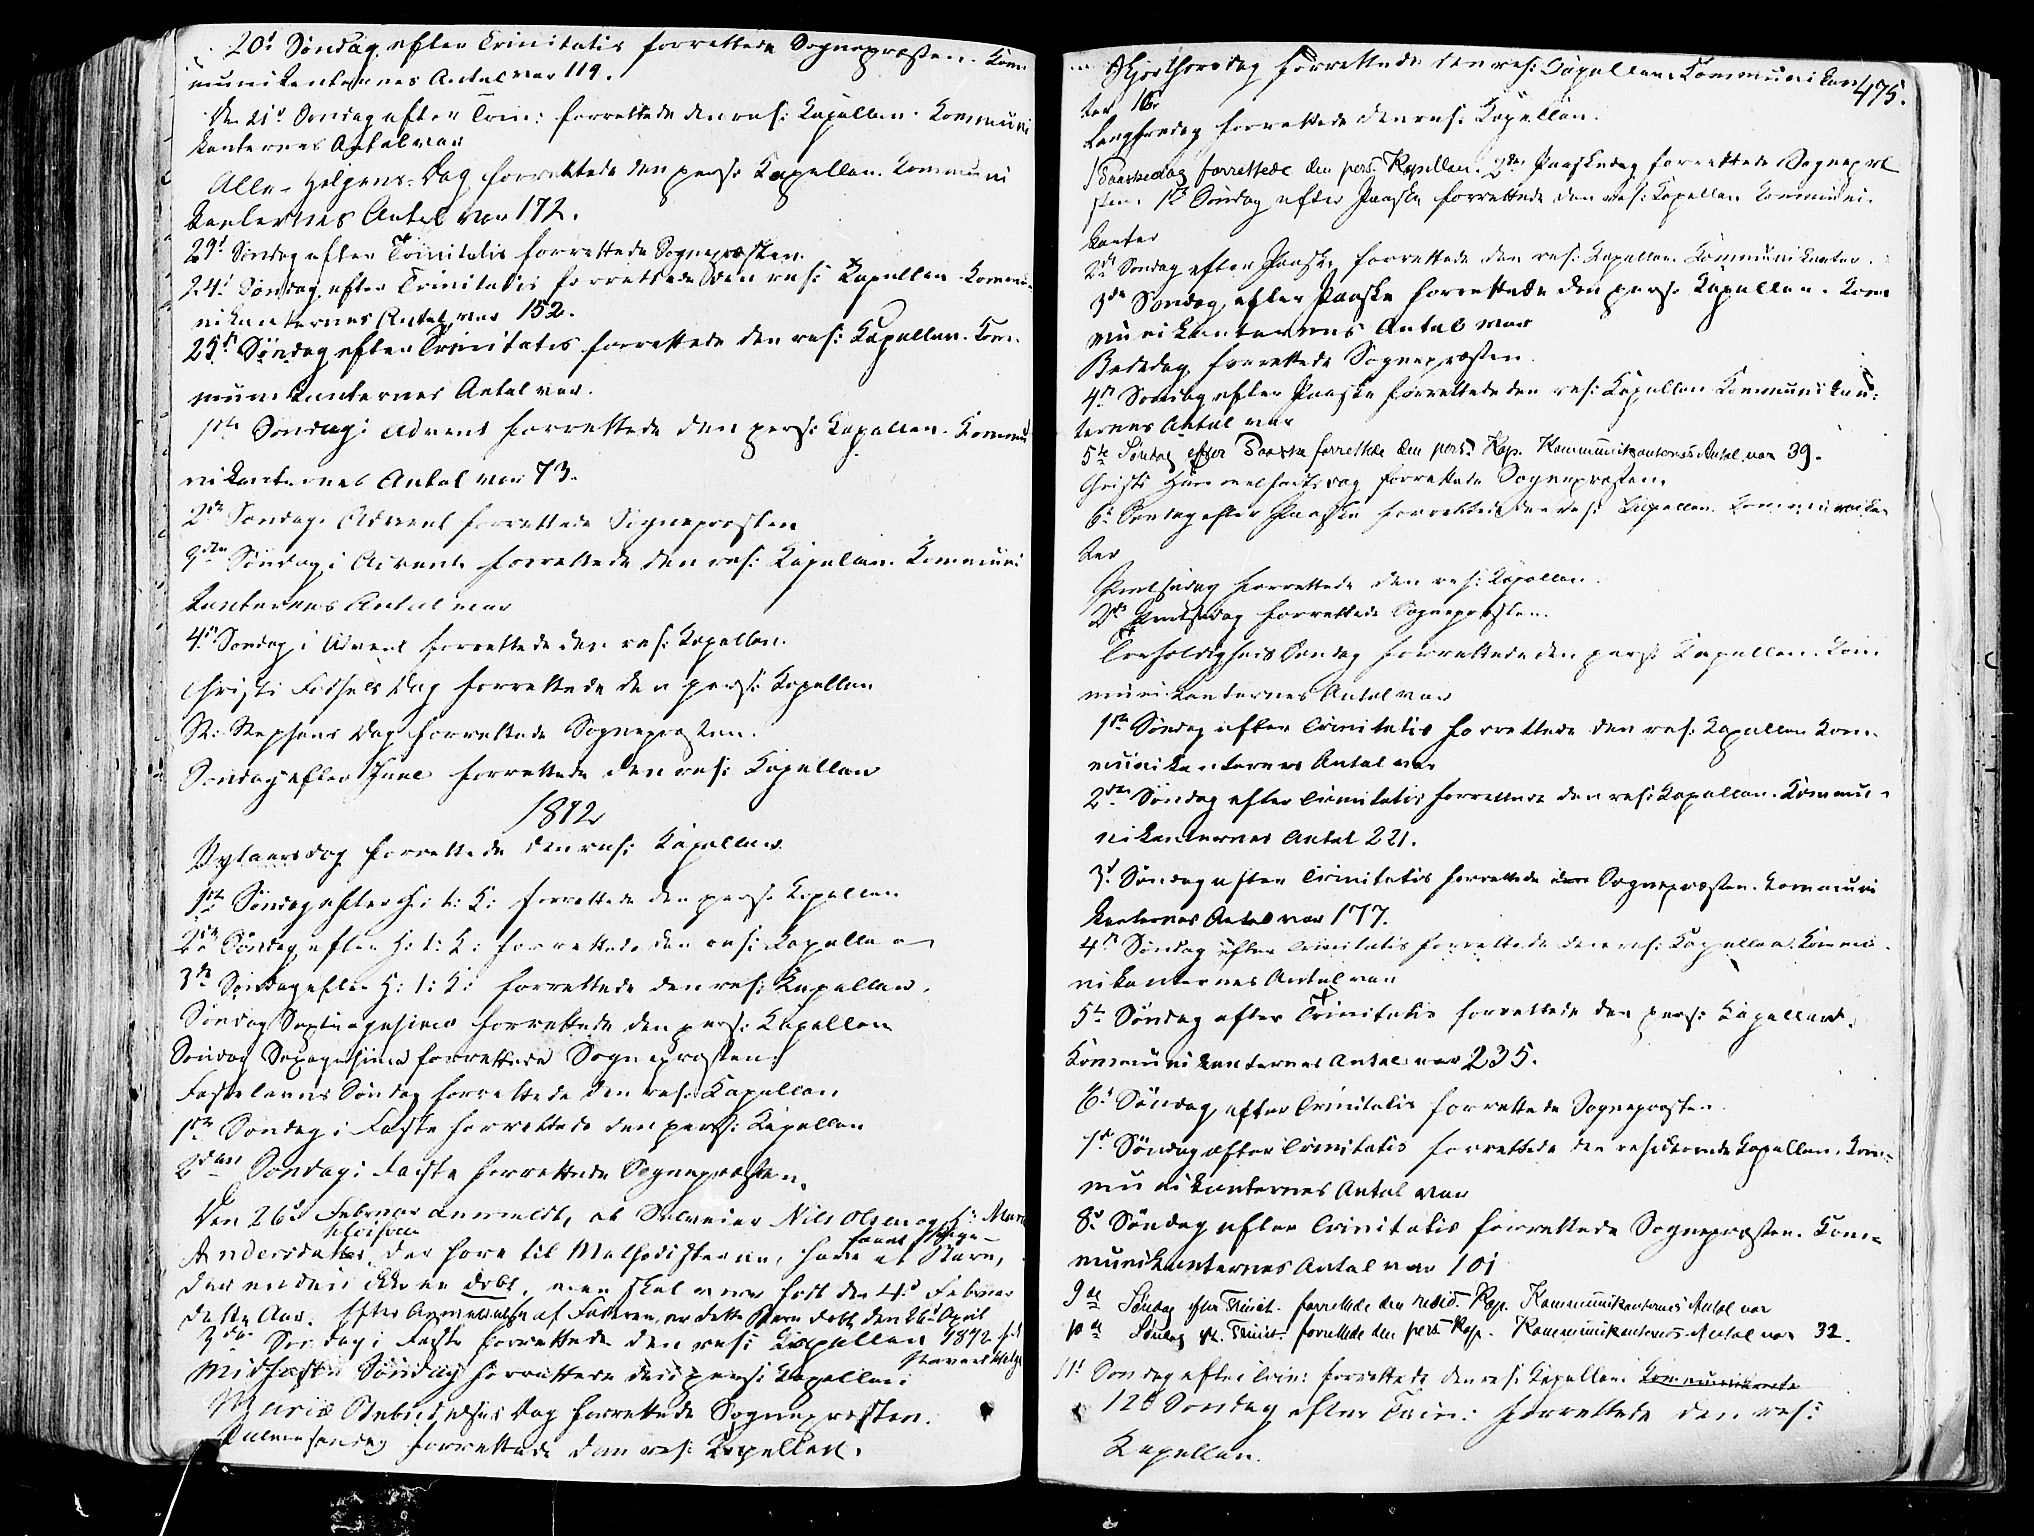 20d Søndag efter Trinitatis forrettede Sognepræsten. Kom-
munikanternes Antal var 119.
Den 21d Søndag efter Trin: forrettede den res: Kapellan. Kommuni
kanternes Antal var
Alle-Helgens-Dag forrettede den pers: Kapellan. Kommuni
kanternes Antal var 172.
23d Søndag efter Trinitatis forrettede Sognepræsten.
24d Søndag efter Trinitatis forrettede den res: Kapellan. Kommu-
nikanternes Antal var 152.
25d Søndag efter Trinitatis forrettede den res: Kapellan. Kom-
munikanternes Antal var.
1ste Søndag i Advent forrettede den pers: Kapellan. Kommu
nikanternes Antal var 73.
2den Søndag i Advent forrettede Sognepræsten
3die Søndag i Advent forrettede den res: Kapellan. Kommuni
kanternes Antal var
4de Søndag i Advent forrettede den res: Kapellan.
Christi Fødsels Dag forrettede den pers: Kapellan
St: Stephans Dag forrettede Sognepræsten.
Søndag efter Juul forrettede den res: Kapellan
1872
Nytaarsdag forrettede den res: Kapellan
1ste Søndag efter H: 3: K: forrettede den pers: Kapellan
2den Søndag efter H: 3: K: forrettede den res: Kapellan
3de Søndag efter H: 3: K: forrettede den res: Kapellan.
Søndag Septuagesima forrettede den pers: Kapellan
Søndag Sexagesima forrettede Sognepræsten.
Fastelavns Søndag forrettede den res: Kapellan
1ste Søndag i Faste forrettede den pers: Kapellan
2den Søndag i Faste forrettede Sognepræsten.
Den 26de Februar anmeldt, at Nils Olsen og H: Maren
Andersdatter, der høre til Methodisterne, have et Barn,
der endnu ikke er døbt, men skal være født den 4d Februar
dette Aar. Efter Anmeldelse af Faderen, er dette Barn døbt den 26d April 1872
3die Søndag i Faste forrettede den res: Kapellan
Midfaste Søndag forrettede den pers: Kapellan.
Mariæ Bebudelses Dag forrettede Sognepræsten.
Palmesøndag forrettede den res: Kapellan.
475.
Skjærthorsdag forrettede den res: Capellan. Kommunikan-
ter 16.
Langfredag forrettede den res: Kapellan.
1 Paaskedag forrettede den pers. Kapellan. 2den Paaskedag forrettede Sognepræ
sten. 1ste Søndag efter Paaske forrettede den res: Kapellan. Kommuni-
kanter
2den Søndag efter Paaske forrettede den res: Kapellan. Kommunikanter.
3de Søndag efter Paaske forrettede den pers: Kapellan. Kom
munikanternes Antal var
Bededag forrettede Sognepræsten.
4de Søndag efter Paaske forrettede den res: Kapellan Kommunikan-
ternes Antal var
5te Søndag efter Paaske forrettede den pers. Kap. Kommunikanternes Antal var 39.
Christi Himmelfartsdag forrettede Sognepræsten.
6d Søndag efter Paaske forrettede den res: Kapellan. Kommunikan
ter
Pintsedag forrettede den res: Kapellan.
2den Pintsedag forrettede Sognepræsten.
Trefoldigheds Søndag forrettede den pers: Kapellan. Kom
munikanternes Antal var
1ste Søndag efter Trinitatis forrettede den res: Kapellan Kom-
munikanternes Antal var
2den Søndag efter Trinitatis forrettede den res: Kapellan. Kommu-
nikanternes Antal 221.
3d Søndag efter Trinitatis forrettede den Sognepræsten. Kommuni
kanternes Antal var 177.
4de Søndag efter Trinitatis forrettede den res: Kapellan. Kommu-
nikanternes Antal var
5te Søndag efter Trinitatis forrettede den pers: Kapellan.
Kommunikanternes Antal var 235.
6d Søndag efter Trinitatis forrettede Sognepræsten.
7d Søndag efter Trinitatis forrettede den residerende Kapellan. Kom-
munikanternes Antal var
8d Søndag efter Trinitatis forrettede Sognepræsten. Kom-
munikanternes Antal var 101
9de Søndag efter Trinit. forrettede den resid. Kap. Kommunikanternes Antal var
10de Søndag eft. Trinit. forrettede den pers Kap. Kommunikanternes Antal var 32.
11d Søndag efter Trin: forrettede den res: Kapellan. Kommunikante
12d Søndag efter Trin: forrettede den res:
Kapellan.